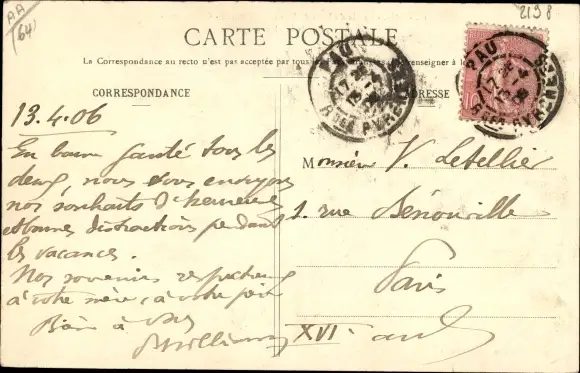 AA
(64)
2198
CARTE POSTALE
La Correspondance au recto n'est pas acceptée par tous
renseigner à la
CORRESPONDANCE
ADRESSE
PAU
17
Bses PYRENEES
PAU
17
Bses PYRENEES
10
13.4.06
En bonne santé tous les
deux, nous vous envoyons
nos souhaits d'heureuses
et bonnes distractions pendant
les vacances.
Nos souvenirs respectueux
à votre mère, à votre père
Bien à vous
Monsieur V. Letellier
1. rue Bénouville
Paris
XVI arr